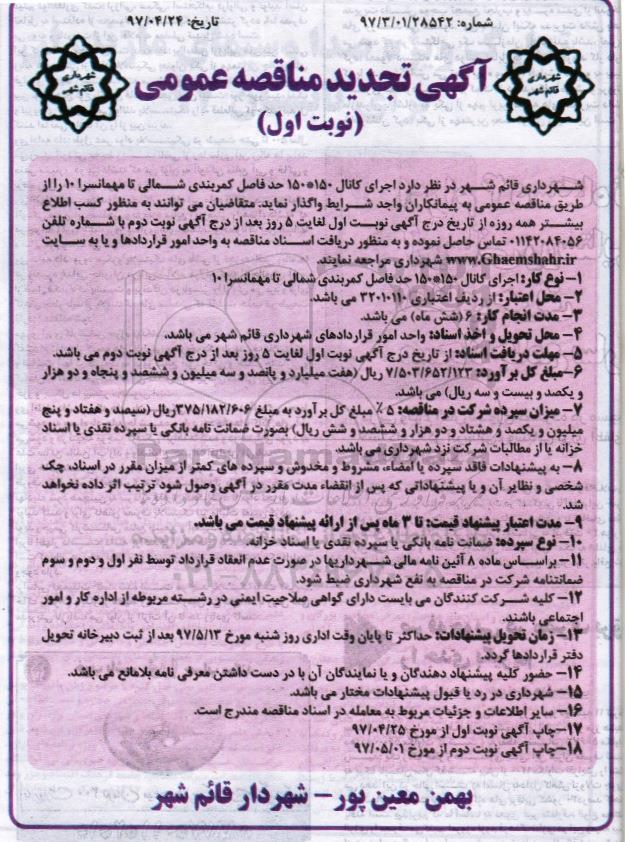 شماره: ۹۷/۳/۰۱/۲۸۵۴۲
تاریخ: ۹۷/۰۴/۲۴
شهرداری قائم شهر
آگهی تجدید مناقصه عمومی
شهرداری قائم شهر
(نوبت اول)
شهرداری قائم شهر در نظر دارد اجرای کانال ۱۵۰*۱۵۰ حد فاصل کمربندی شمالی تا مهمانسرا ۱۰ را از
طریق مناقصه عمومی به پیمانکاران واجد شرایط واگذار نماید. متقاضیان می توانند به منظور کسب اطلاع
بیشتر همه روزه از تاریخ درج آگهی نوبت اول لغایت ۵ روز بعد از درج آگهی نوبت دوم با شماره تلفن
۰۱۱۴۲۰۸۴۰۵۶ تماس حاصل نموده و به منظور دریافت اسناد مناقصه به واحد امور قراردادها و یا به سایت
www.Ghaemshahr.ir شهرداری مراجعه نمایند.
۱– نوع کار: اجرای کانال ۱۵۰*۱۵۰ حد فاصل کمربندی شمالی تا مهمانسرا ۱۰
۲– محل اعتبار: از ردیف اعتباری ۳۲۰۱۰۱۱۰ می باشد.
۳– مدت انجام کار: ۶ (شش ماه) می باشد.
۴– محل تحویل و اخذ اسناد: واحد امور قراردادهای شهرداری قائم شهر می باشد.
۵– مهلت دریافت اسناد: از تاریخ درج آگهی نوبت اول لغایت ۵ روز بعد از درج آگهی نوبت دوم می باشد.
۶–مبلغ کل برآورد: ۷/۵۰۳/۶۵۲/۱۲۳ ریال (هفت میلیارد و پانصد و سه میلیون و ششصد و پنجاه و دو هزار
و یکصد و بیست و سه ریال) می باشد.
۷– میزان سپرده شرکت در مناقصه: ۵ ٪ مبلغ کل برآورد به مبلغ ۳۷۵/۱۸۲/۶۰۶ریال (سیصد و هفتاد و پنج
میلیون و یکصد و هشتاد و دو هزار و ششصد و شش ریال) بصورت ضمانت نامه بانکی یا سپرده نقدی یا اسناد
خزانه یا از مطالبات شرکت نزد شهرداری می باشد.
۸– به پیشنهادات فاقد سپرده یا امضاء، مشروط و مخدوش و سپرده های کمتر از میزان مقرر در اسناد، چک
شخصی و نظایر آن و یا پیشنهاداتی که پس از انقضاء مدت مقرر در آگهی وصول شود ترتیب اثر داده نخواهد
شد.
۹– مدت اعتبار پیشنهاد قیمت: تا ۳ ماه پس از ارائه پیشنهاد قیمت می باشد.
۱۰– نوع سپرده: ضمانت نامه بانکی یا سپرده نقدی یا اسناد خزانه
۱۱– براساس ماده ۸ آئین نامه مالی شهرداریها در صورت عدم انعقاد قرارداد توسط نفر اول و دوم و سوم
ضمانتنامه شرکت در مناقصه به نفع شهرداری ضبط شود.
۱۲– کلیه شرکت کنندگان می بایست دارای گواهی صلاحیت ایمنی در رشته مربوطه از اداره کار و امور
اجتماعی باشند.
۱۳– زمان تحویل پیشنهادات: حداکثر تا پایان وقت اداری روز شنبه مورخ ۹۷/۵/۱۳ بعد از ثبت دبیرخانه تحویل
دفتر قراردادها گردد.
۱۴– حضور کلیه پیشنهاد دهندگان و یا نمایندگان آن با در دست داشتن معرفی نامه بلامانع می باشد.
۱۵– شهرداری در رد یا قبول پیشنهادات مختار می باشد.
۱۶– سایر اطلاعات و جزئیات مربوط به معامله در اسناد مناقصه مندرج است.
۱۷–چاپ آگهی نوبت اول از مورخ ۹۷/۰۴/۲۵
۱۸–چاپ آگهی نوبت دوم از مورخ ۹۷/۰۵/۰۱
بهمن معین پور– شهردار قائم شهر